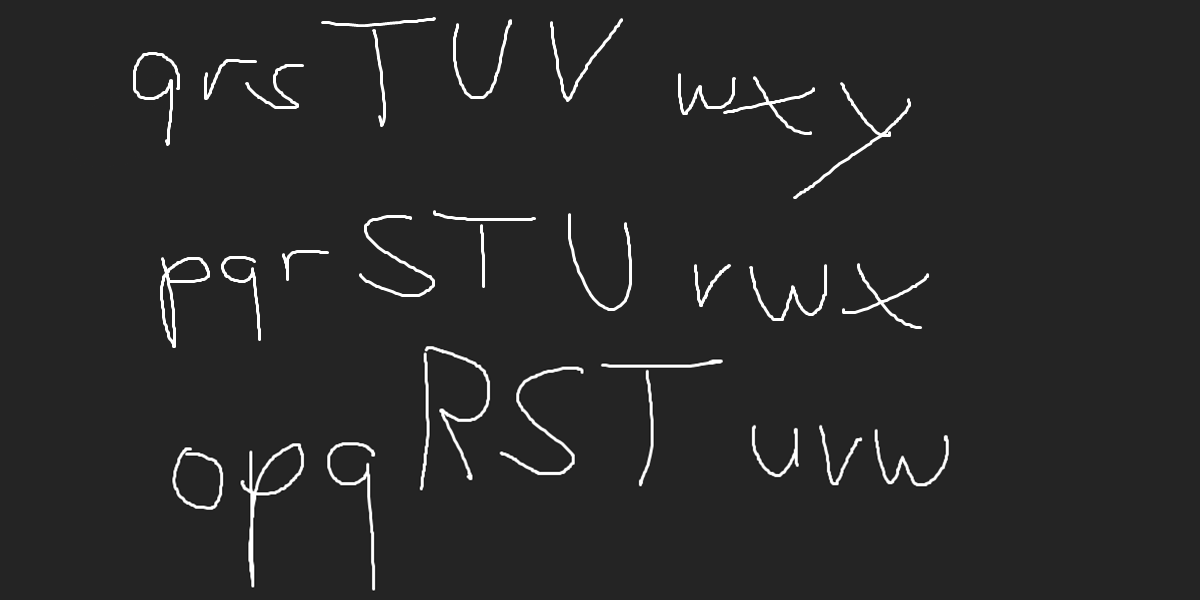 qrsTUVwxy
pqrSTUvwx
opqRSTuvw